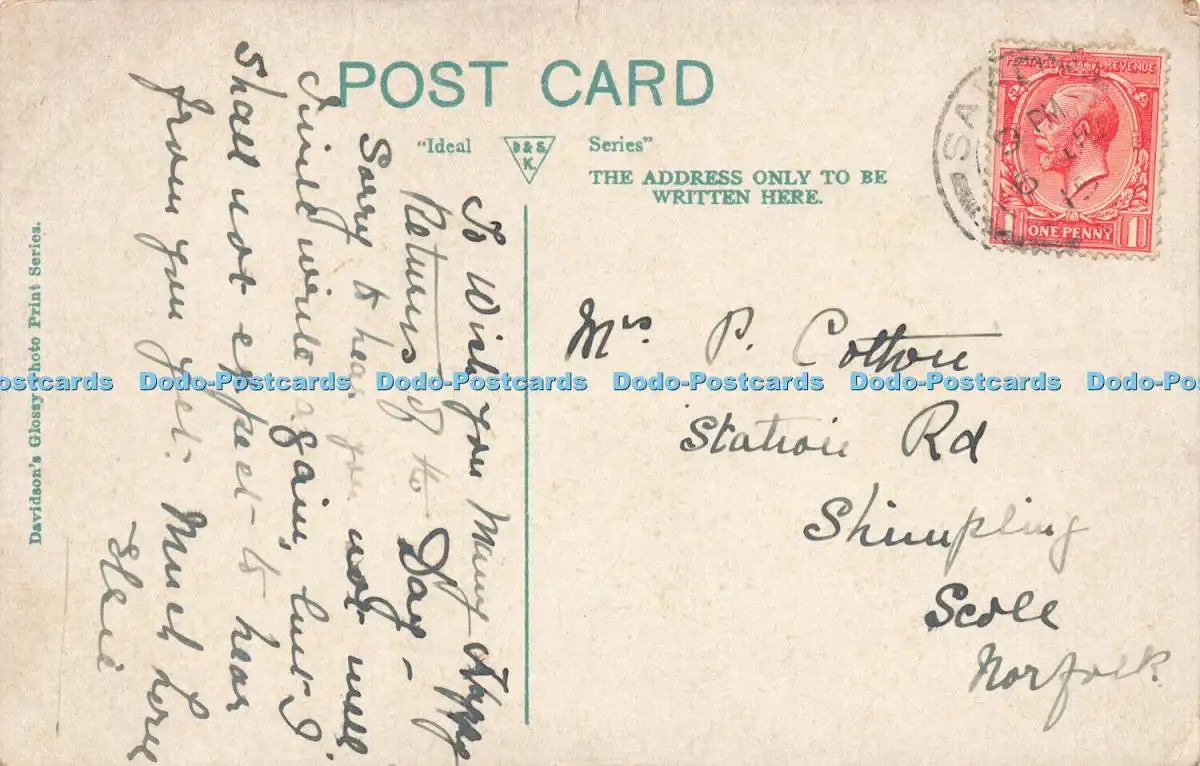 POST CARD
"Ideal B & S. K. Series"
THE ADDRESS ONLY TO BE
WRITTEN HERE.
POSTAGE REVENUE
1 ONE PENNY 1
PM
To Wish you Many Happy
Returns of to Day –
Sorry to hear you not well
Will write again, but I
Shall not expect to hear
from you yet. Much Love
Elsie
Mrs P. Cotton
Station Rd
Shimpling
Scole
Norfolk
Davidson's Glossy Photo Print Series.
Dodo-Postcards Dodo-Postcards Dodo-Postcards Dodo-Postcards Dodo-Postcards